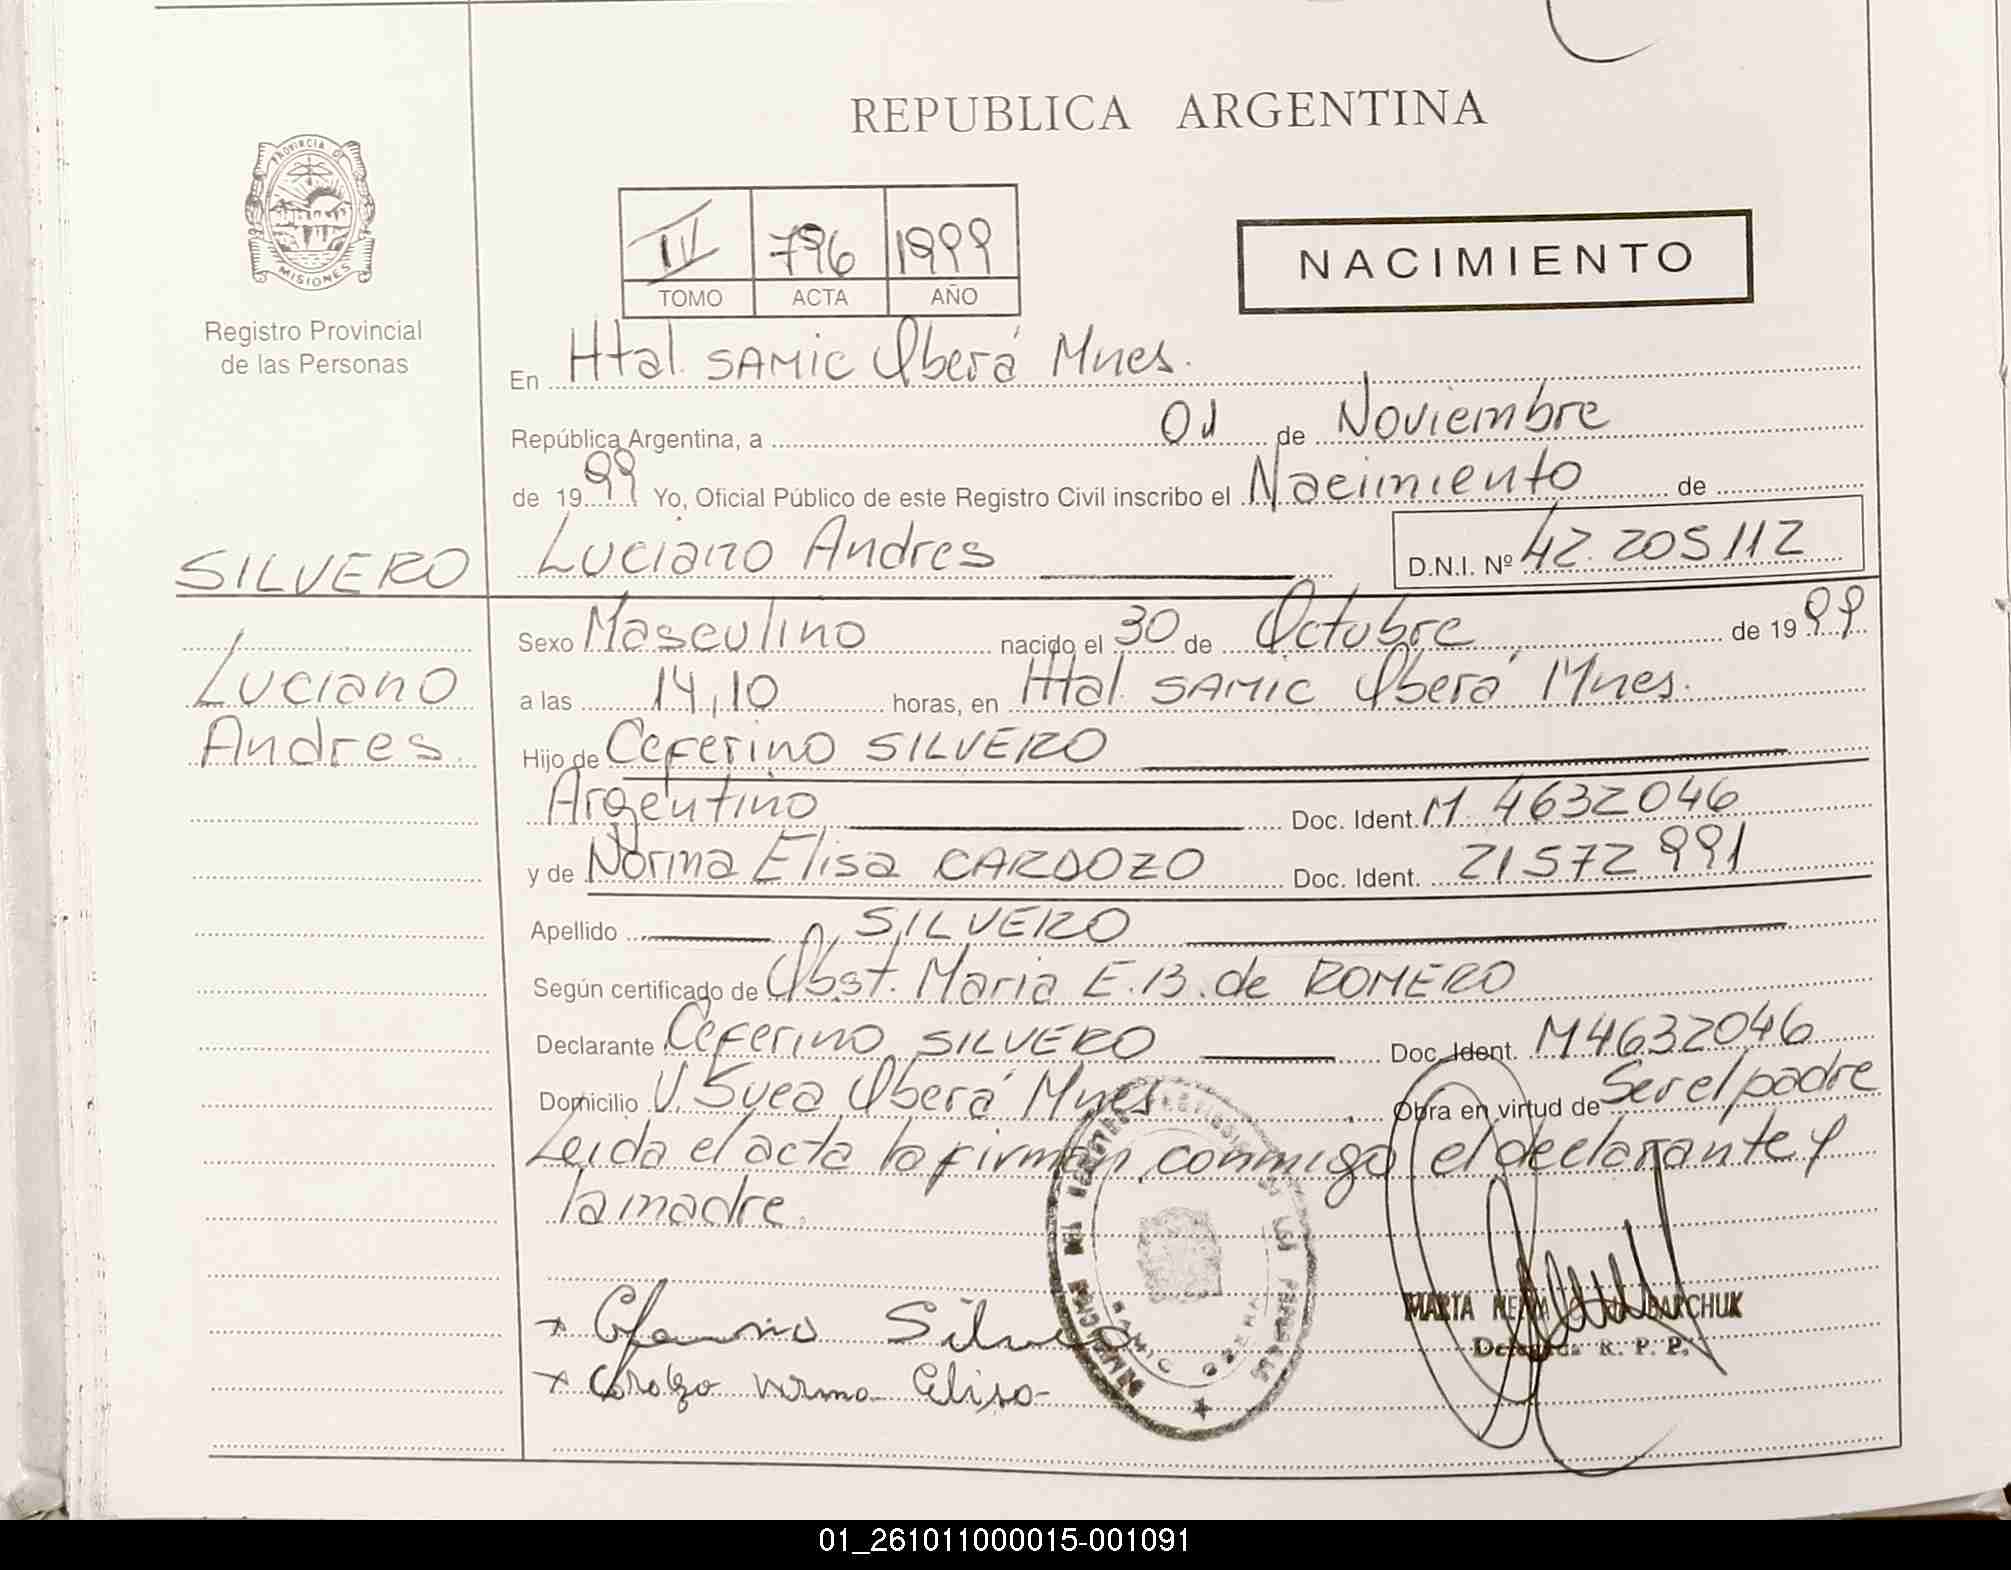 REPUBLICA ARGENTINA
PROVINCIA DE
MISIONES
Registro Provincial
de las Personas
III 796 1999
TOMO ACTA AÑO
NACIMIENTO
En Htal. SAMIC Oberá Mnes.
República Argentina, a 01 de Noviembre
de 1999 Yo, Oficial Público de este Registro Civil inscribo el Nacimiento de
SILVERO Luciano Andres D.N.I. Nº 42.205112
Sexo Masculino nacido el 30 de Octubre de 1999
Luciano a las 14,10 horas, en Htal. SAMIC Oberá Mnes.
Andres. Hijo de Ceferino SILVERO
Argentino Doc. Ident. M 4632046
y de Norma Elisa CARDOZO Doc. Ident. 21572991
Apellido SILVERO
Según certificado de Obst. Maria E.B. de ROMERO
Declarante Ceferino SILVERO Doc. Ident. M4632046
Domicilio V. Svea Oberá Mnes Obra en virtud de Ser el padre
Leida el acta la firman conmigo el declarante y
la madre.
MARTA
Delegada R. P. P.
+ Ceferino Silvero
+ Cardozo norma Elisa
01_261011000015-001091